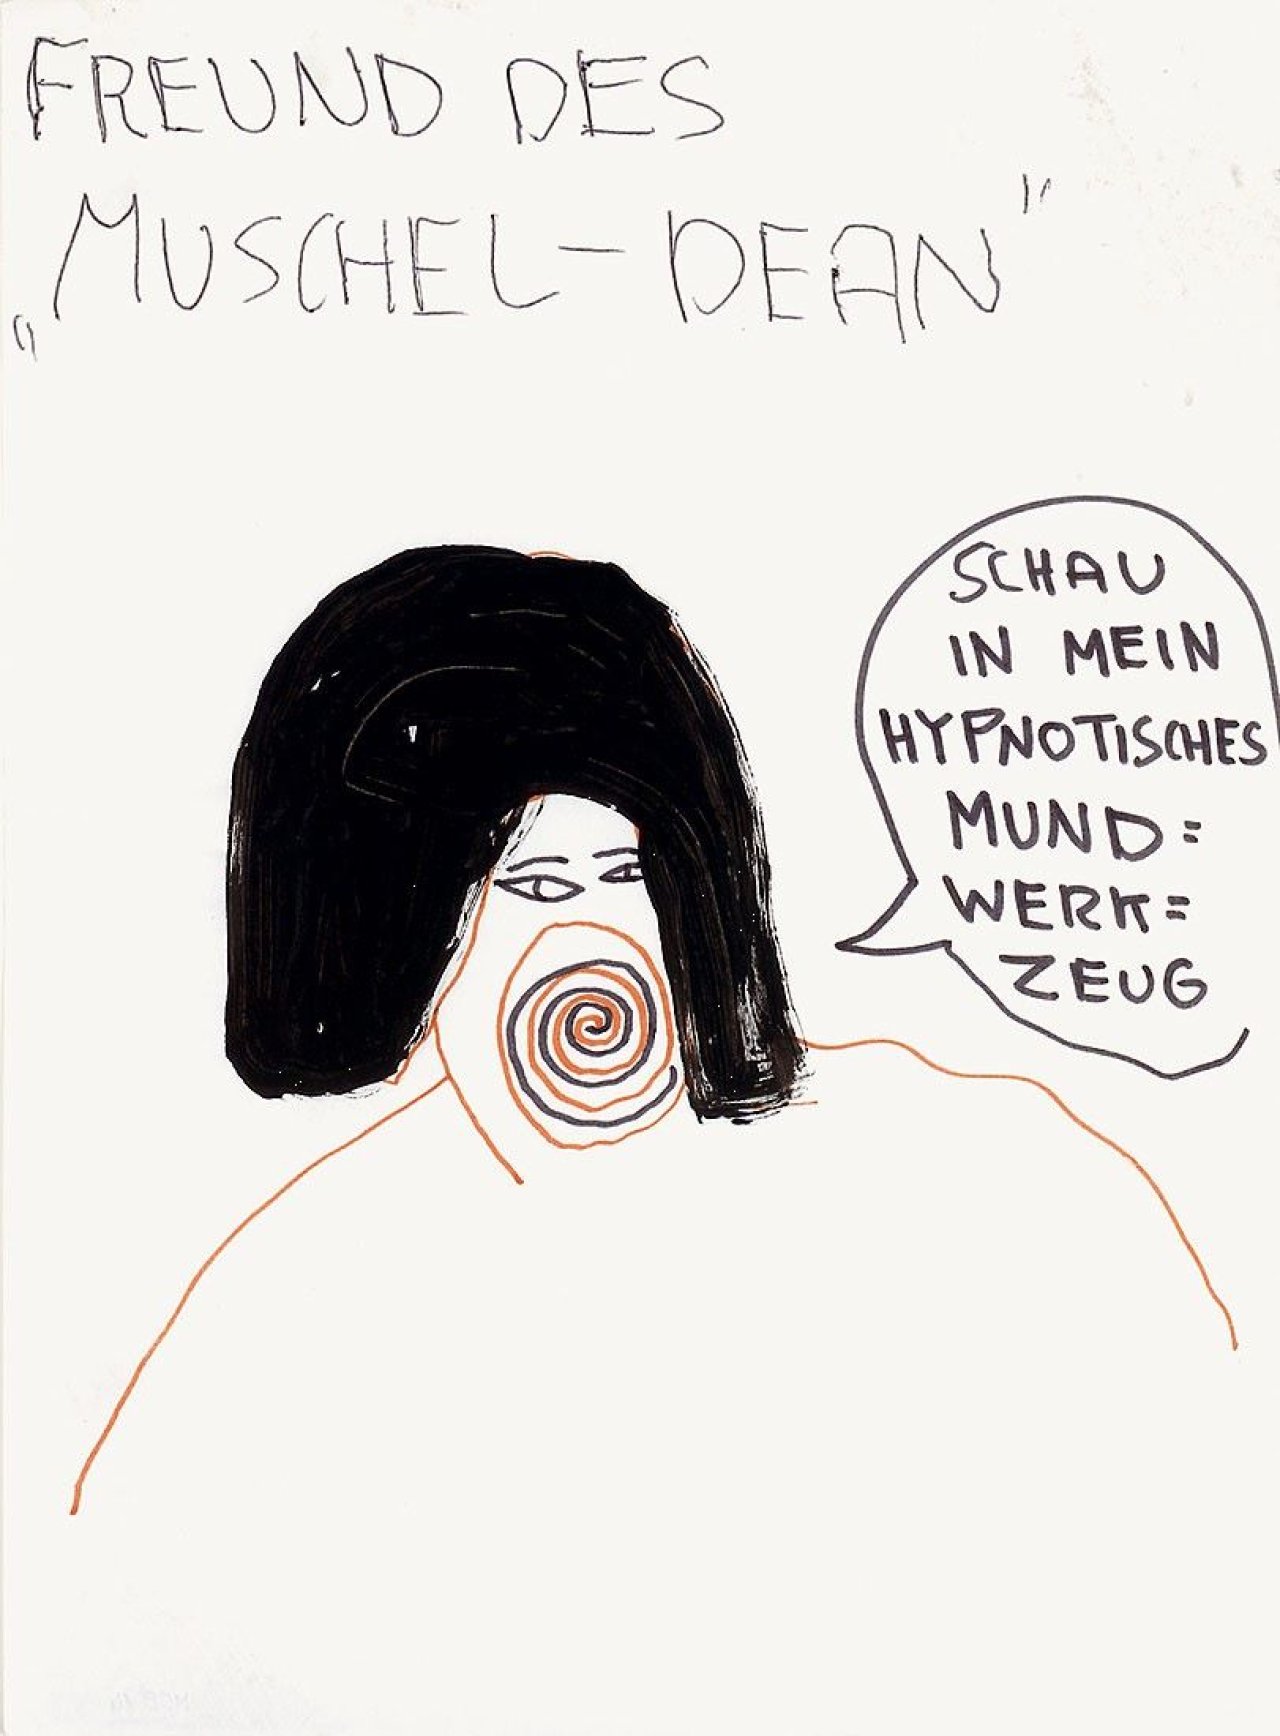 FREUND DES
„MUSCHEL-DEAN"
SCHAU
IN MEIN
HYPNOTISCHES
MUND=
WERK=
ZEUG